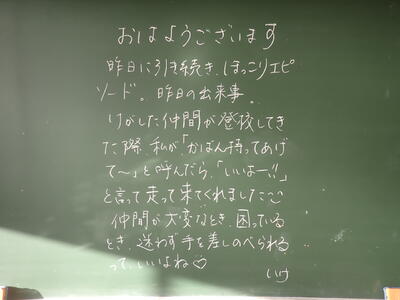 おはようございます
昨日に引き続き、ほっこりエピ
ソード。昨日の出来事。
けがした仲間が登校してき
た際、私が「かばん持ってあげ
て～」と呼んだら、「いいよー!!」
と言って走って来てくれました
仲間が大変なとき、困っている
とき、迷わず手を差しのべられる
って、いいよね♡
いけ